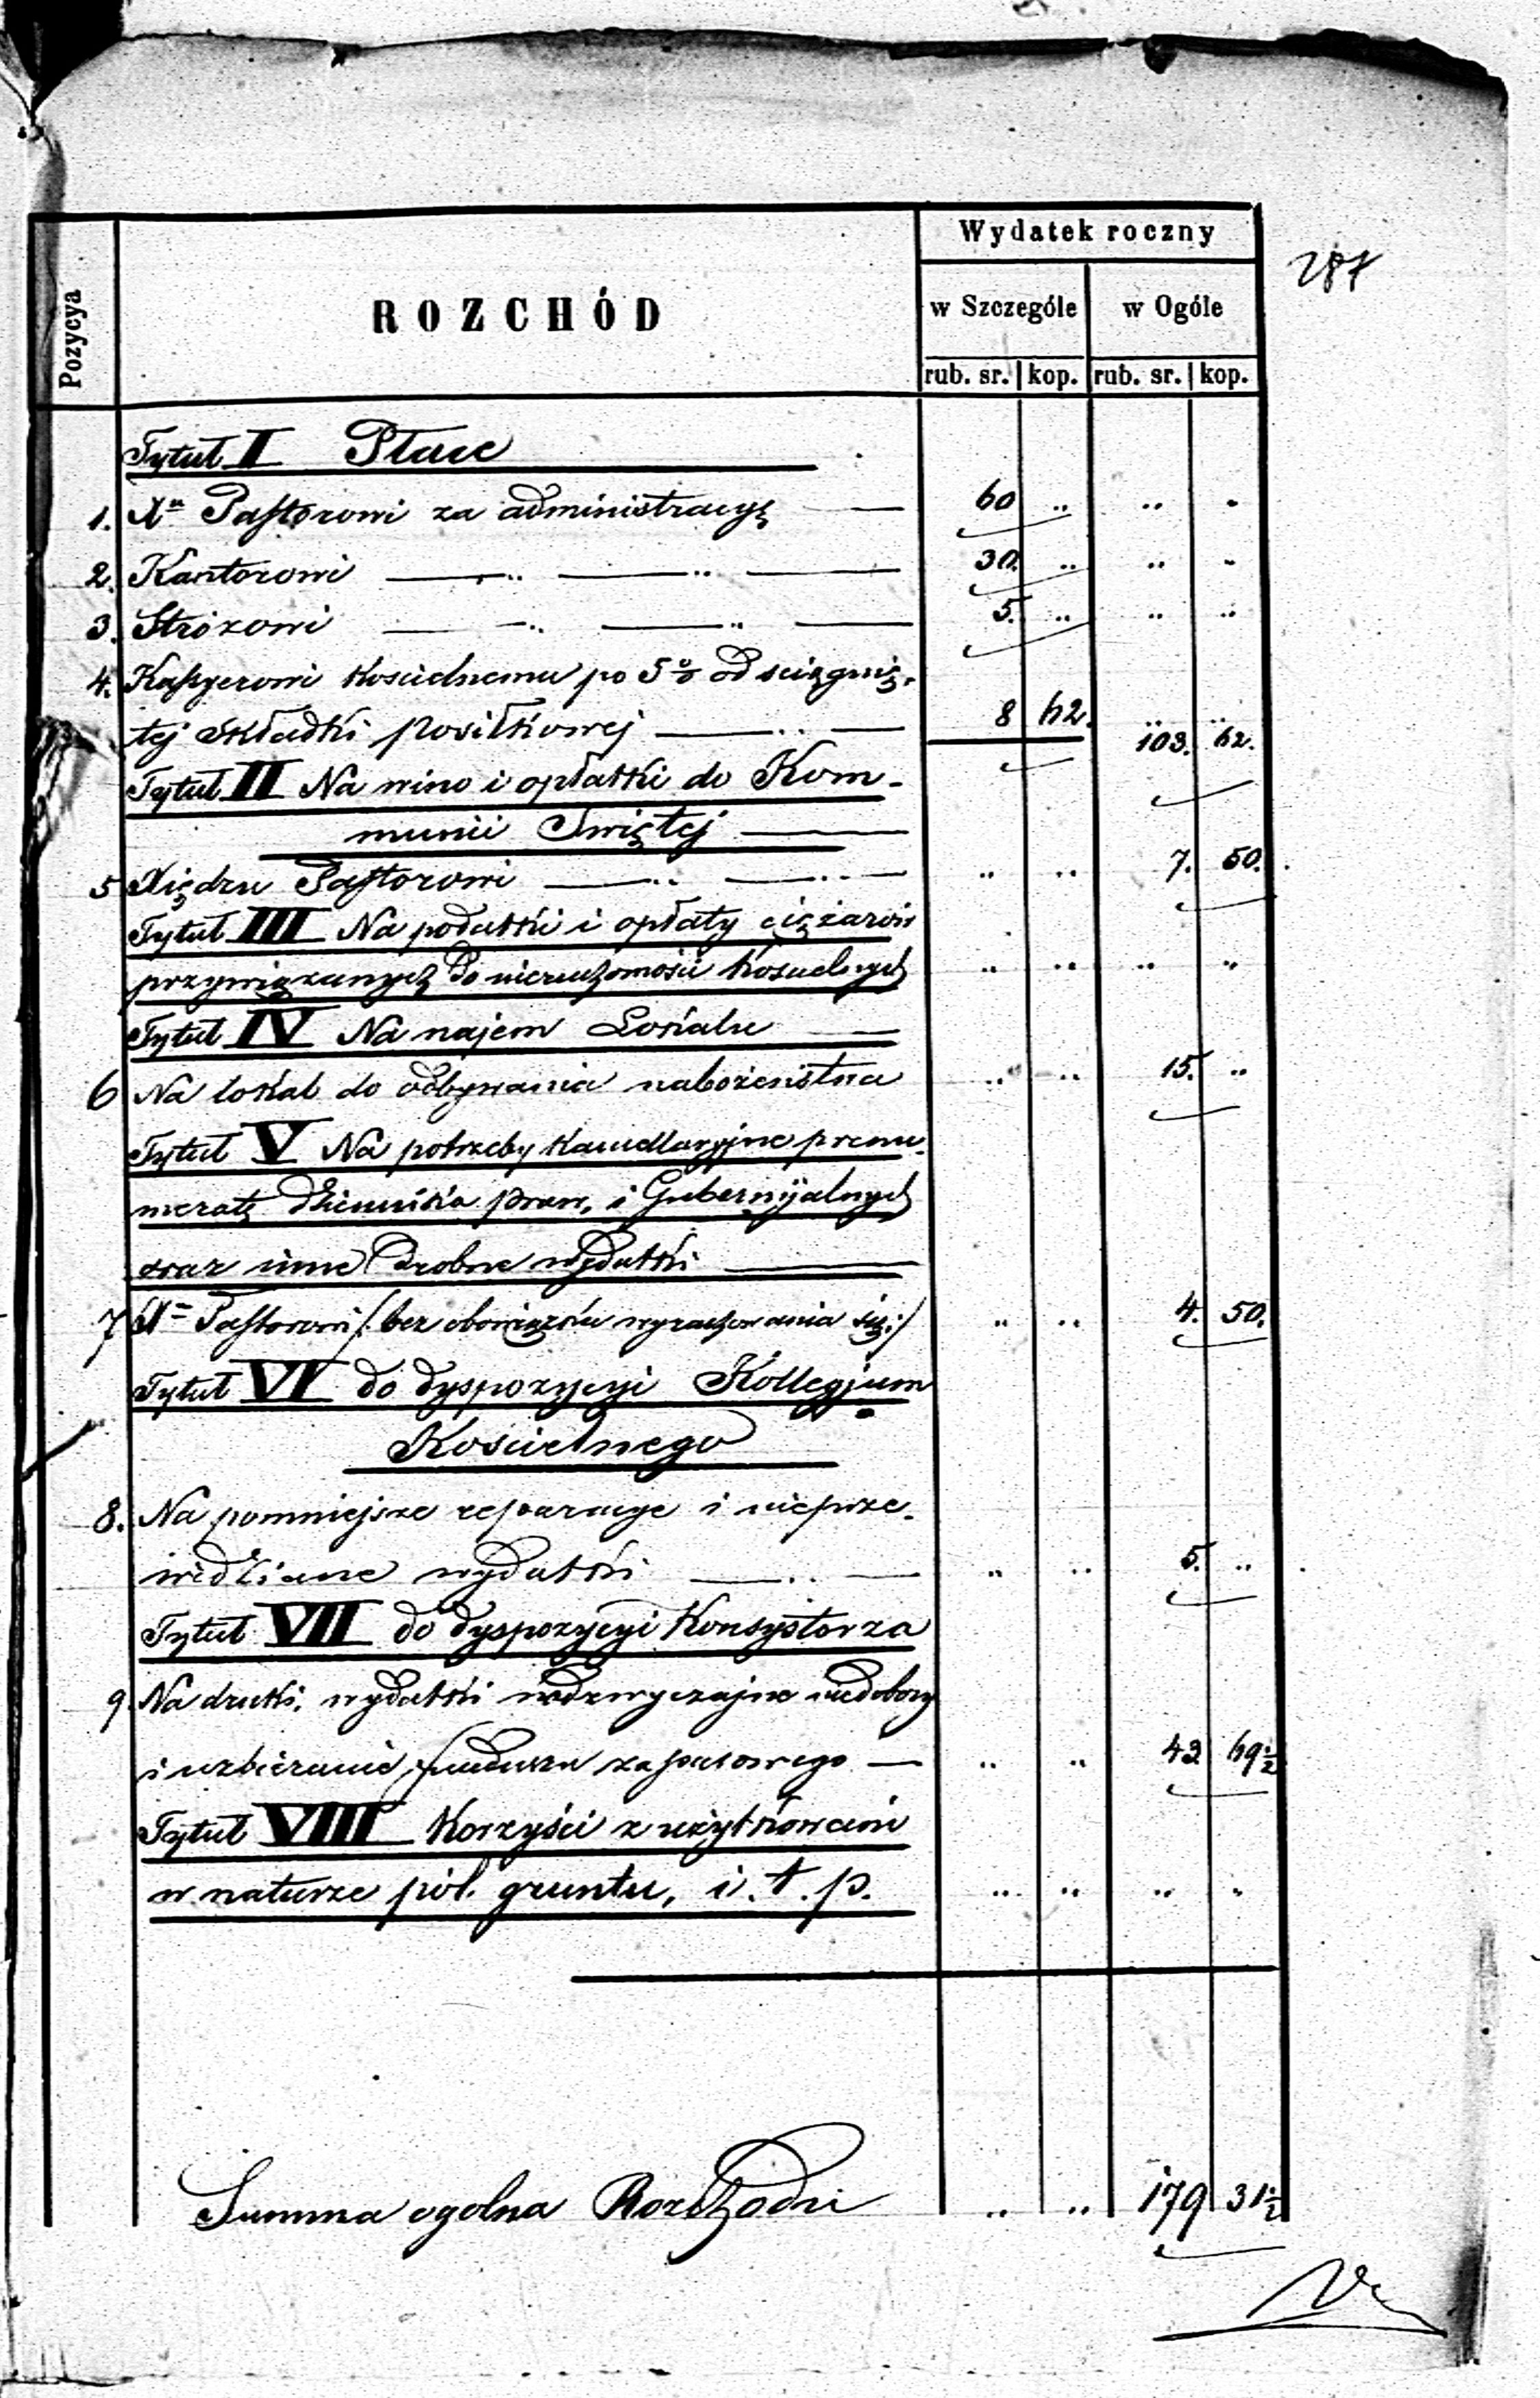 Wydatek roczny
287
Pozycya
ROZCHÓD
w Szczególe w Ogóle
rub. sr. kop. rub. sr. kop.
Tytuł I Płace
1. Xu Pastorowi za administracyę 60 .. .. ..
2. Kantorowi 30. .. .. ..
3. Stróżowi 5. .. .. ..
4. Kassyerowi Kościelnemu po 5% od ściągnię-
tej składki posiłkowej 8 62. 103. 62.
Tytuł II Na wino i opłatki do Kom-
munii Swiętej
5 Xiędzu Pastorowi .. .. 7. 50.
Tytuł III Na podatki i opłaty ciężarów
przywiązanych do nieruchomości Kościelnych .. .. .. ..
Tytuł IV Na najem Lokalu
6 Na lokal do odbywania nabożeństwa .. .. 15. ..
Tytuł V Na potrzeby Kancellaryjne prenu-
meratę Dziennika praw, i Gubernijalnych
oraz inne Drobne wydatki
7 Xu Pastorowi /: bez obowiązku wyrachowania się :/ .. .. 4. 50.
Tytuł VI do dyspozycyi Kollegjum
Kościelnego
8. Na pomniejsze reparacye i nieprze-
widziane wydatki .. .. 5. ..
Tytuł VII do dyspozycyi Konsystorza
9. Na druki, wydatki nadzwyczajne niedobory
i uzbieranie funduszu zapasowego .. .. 43 69½
Tytuł VIII Korzyści z użytkowań
w naturze pól. gruntu, i. t. p. .. .. .. ..
Summa ogolna Rozchodu .. .. 179 31½